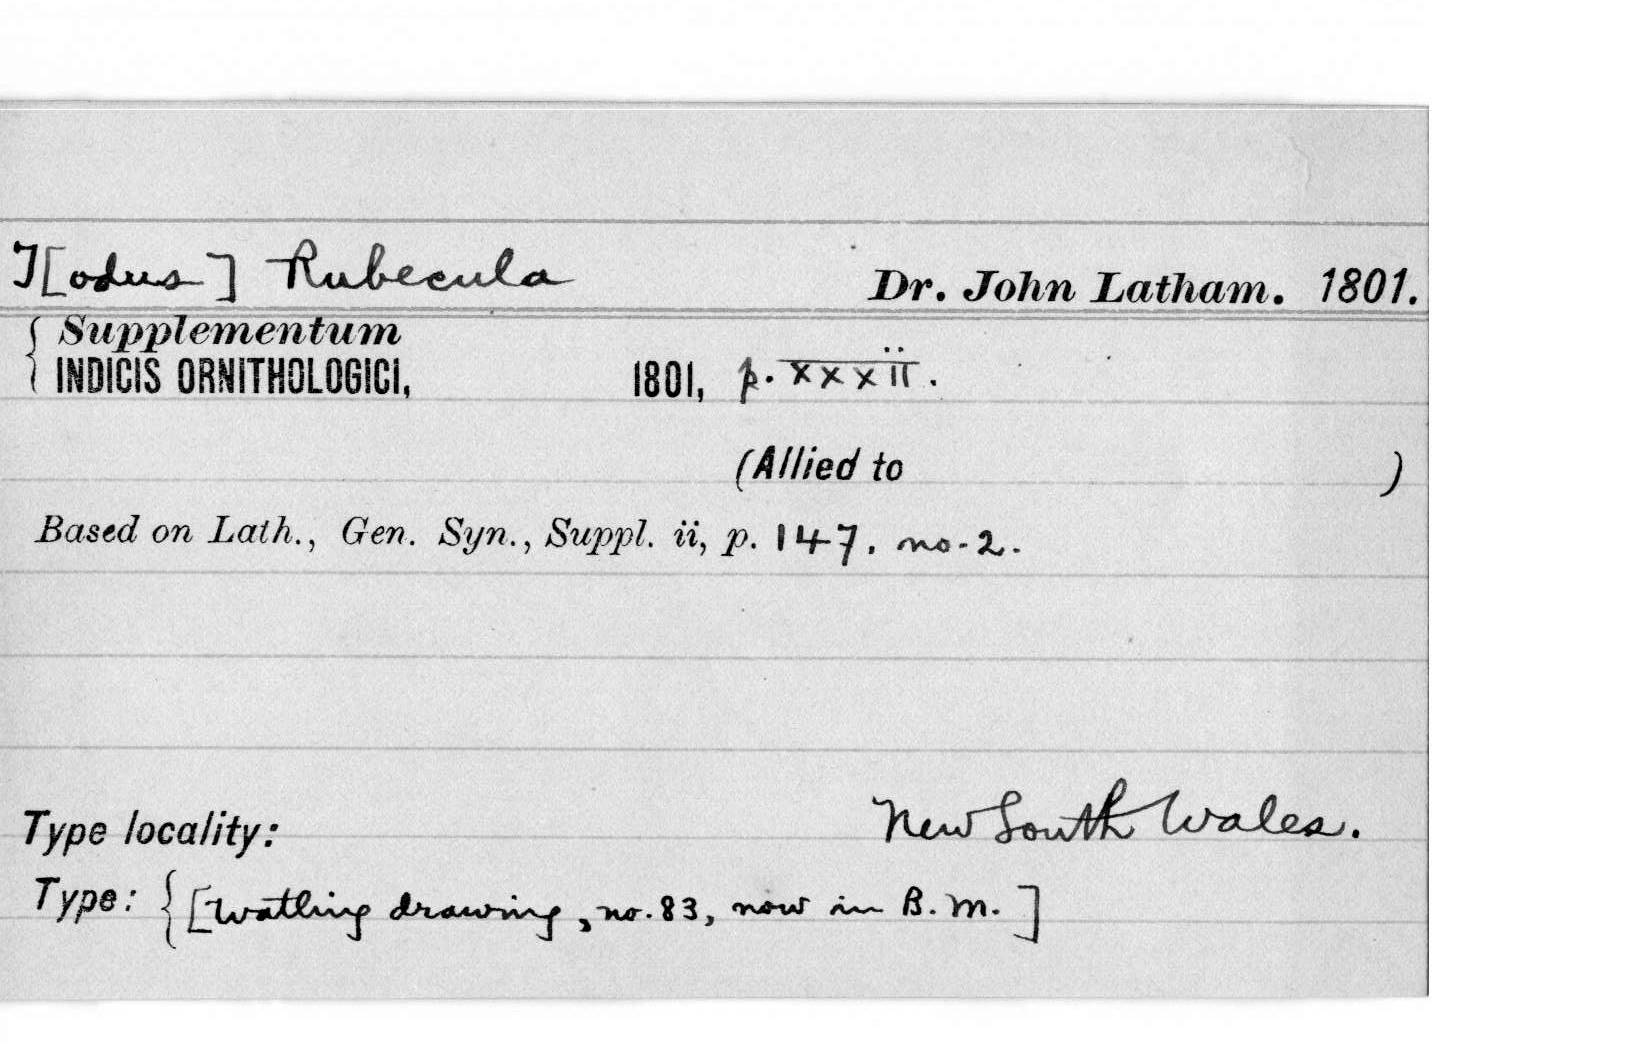 T[odus] Rubecula Dr. John Latham. 1801.
{ Supplementum
INDICIS ORNITHOLOGICI, 1801, p. xxxii.
(Allied to )
Based on Lath., Gen. Syn., Suppl. ii, p. 147. no. 2.
Type locality: New South Wales.
Type: { [Watling drawing, no. 83, now in B. M.]